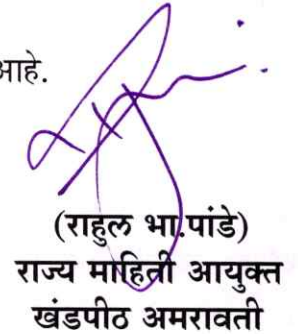 आहे.
(राहुल भा.पांडे)
राज्य माहिती आयुक्त
खंडपीठ अमरावती